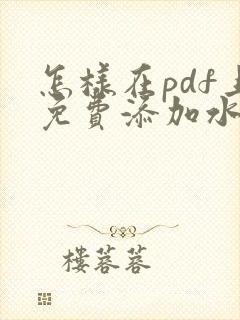 怎样在pdf上
免费添加水
楼蓉蓉